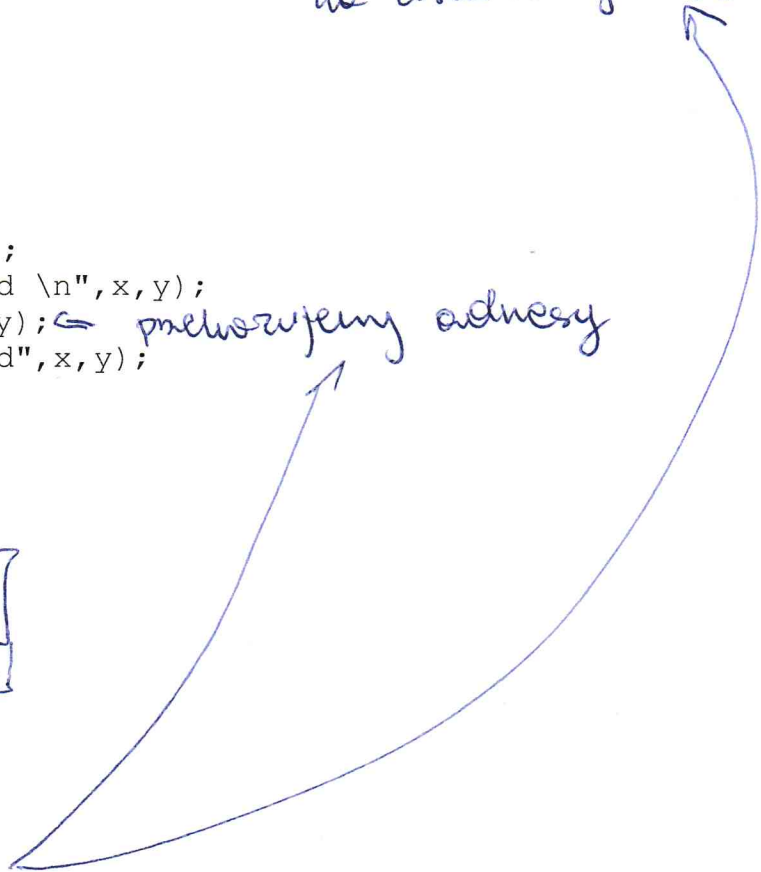 na
;
d \n",x,y);
y);← przekazujemy adresy
d",x,y);